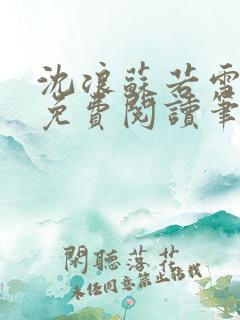 沈浪蘇若雪
免費閱讀筆
閑聽落花
未经同意禁止转载